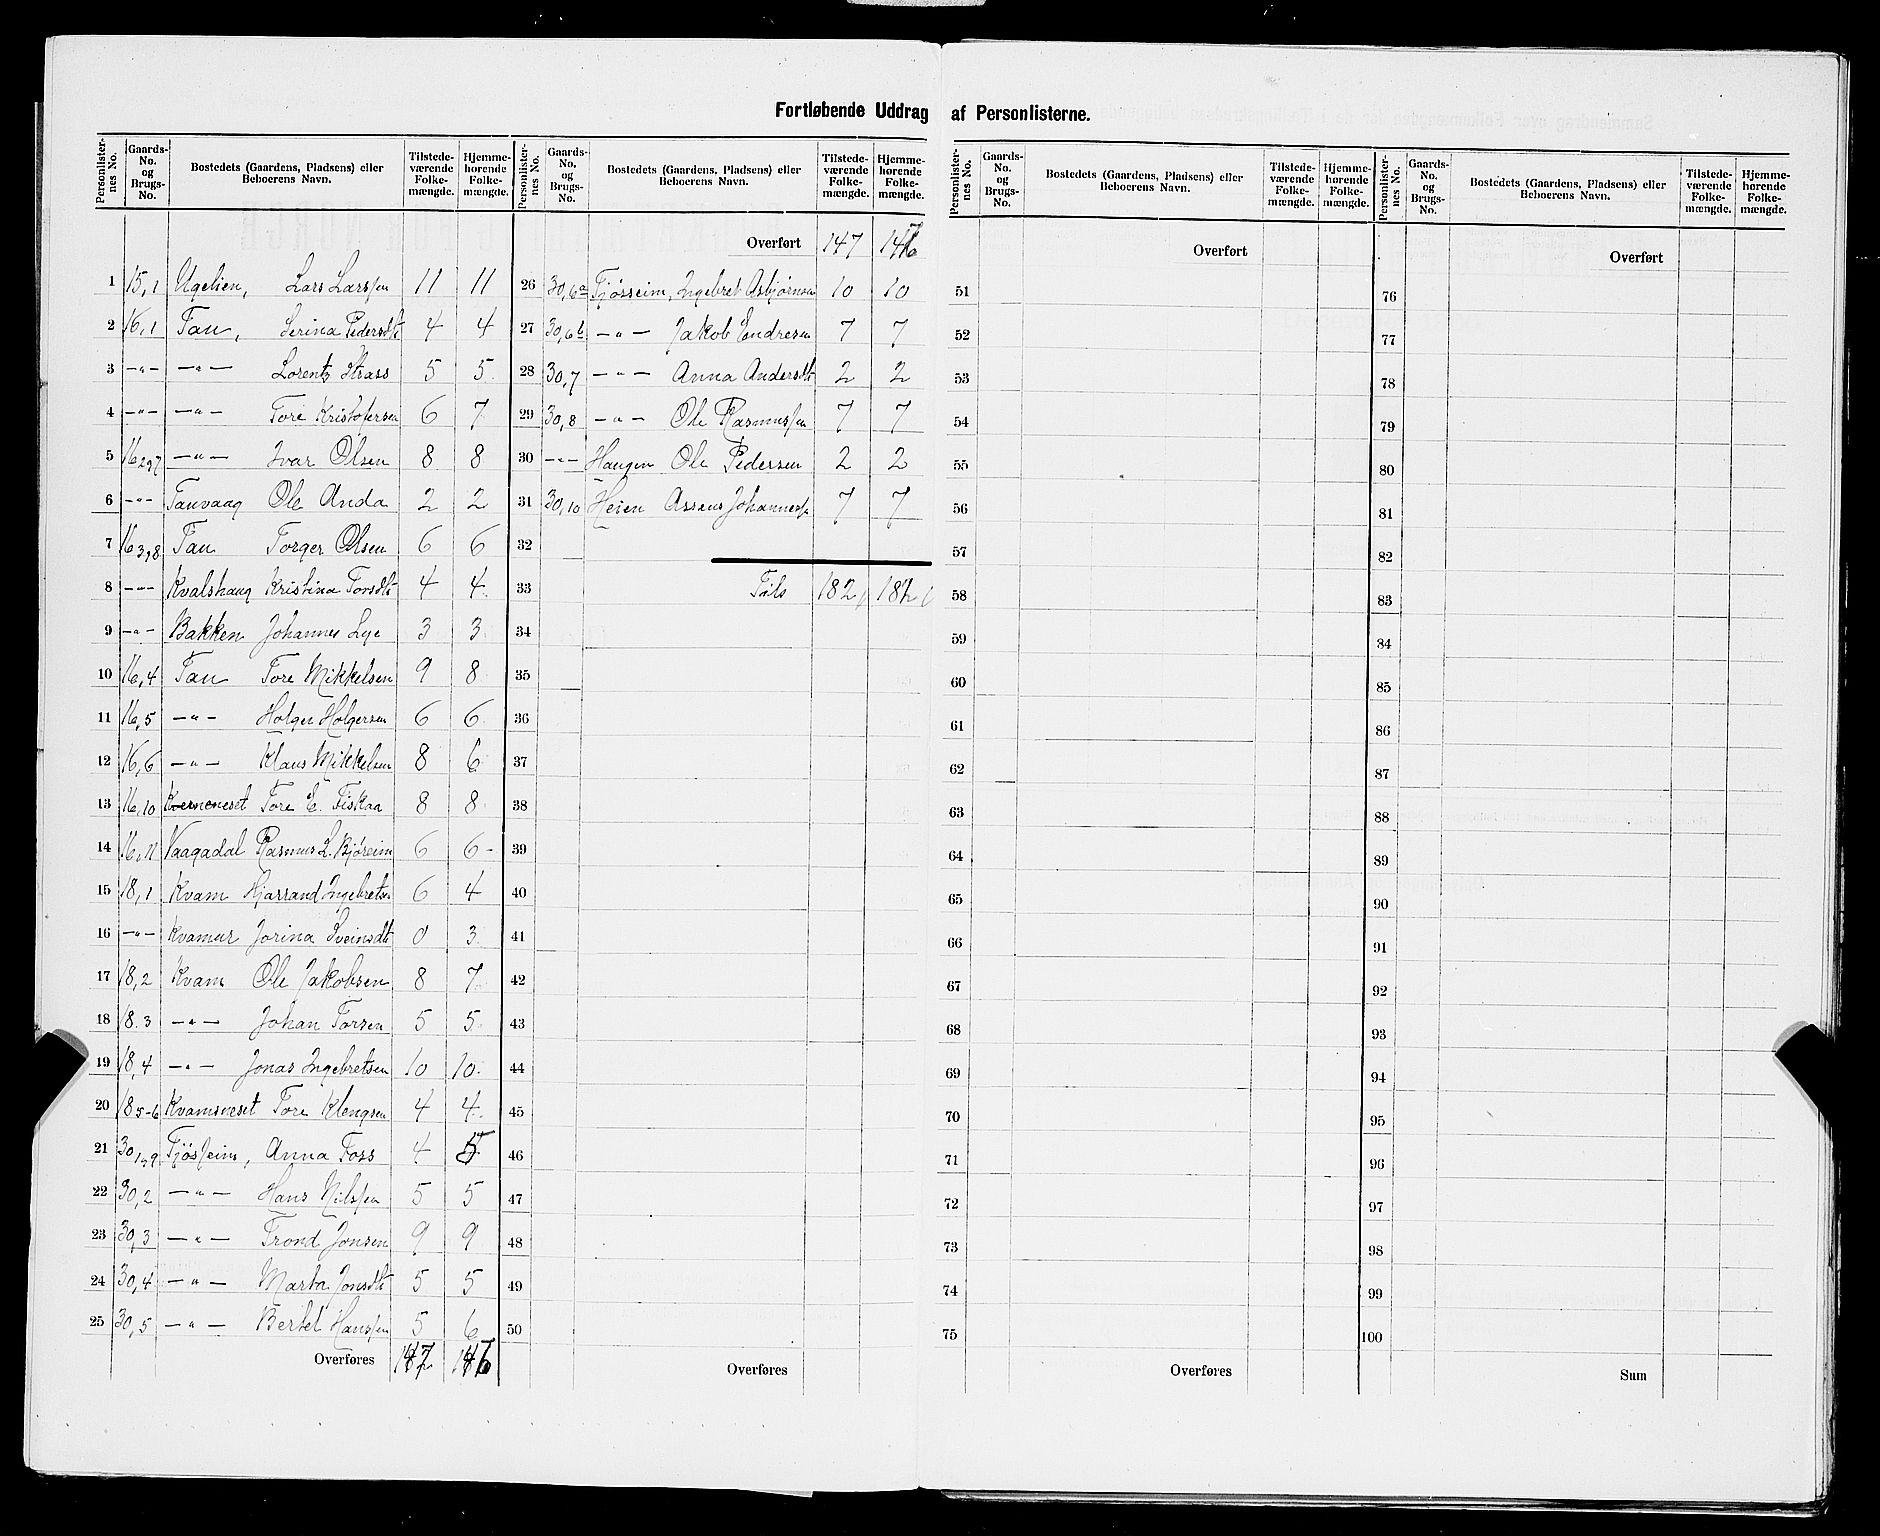 Fortløbende Uddrag af Personlisterne.
Personlister-nes No. | Gaards-No. og Brugs-No. | Bostedets (Gaardens, Pladsens) eller Beboerens Navn. | Tilstede-værende Folke-mængde. | Hjemme-hørende Folke-mængde.
1 15,1 Ugelien, Lars Larssen 11 11
2 16,1 Tau, Serina Pedersdtr 4 4
3 -"- -"- Lorentz Strass 5 5
4 -"- -"- Tore Kristofersen 6 7
5 16 2,7 -"- Ivar Olsen 8 8
6 -"- Tauvaag Ole Anda 2 2
7 16 3,8 Tau Torger Olsen 6 6
8 -"- Kvalshaug Kristina Torsdtr 4 4
9 -"- Bakken Johannes Lye 3 3
10 16,4 Tau Tore Mikkelsen 9 8
11 16,5 -"- Holger Holgersen 6 6
12 16,6 -"- Klaus Mikkelsen 8 6
13 16,10 Kverneneset Tore E. Fiskaa 8 8
14 16,11 Vaagadal Rasmus L. Bjøreim 6 6
15 18,1 Kvam Hjarrand Ingebretsen 6 4
16 -"- Kvamur Jorina Sveinsdtr 0 3
17 18,2 Kvam Ole Jakobsen 8 7
18 18.3 -"- Johan Torsen 5 5
19 18,4 -"- Jonas Ingebretsen 10 10
20 18 5-6 Kvamsneset Tore Klengsen 4 4
21 30 1,9 Tjøsseim, Anna Foss 4 5
22 30,2 -"- Hans Nilssen 5 5
23 30,3 -"- Trond Jonsen 9 9
24 30,4 -"- Marta Jonsdtr 5 5
25 30,5 -"- Bertel Hanssen 5 6
Overføres 147 146
Personlister-nes No. | Gaards-No. og Brugs-No. | Bostedets (Gaardens, Pladsens) eller Beboerens Navn. | Tilstede-værende Folke-mængde. | Hjemme-hørende Folke-mængde.
Overført 147
26 30,6a Tjøsseim, Ingebret Asbjørnsen 10 10
27 30,6b -"- Jakob Endresen 7 7
28 30,7 -"- Anna Andersdtr 2 2
29 30,8 -"- Ole Rasmussen 7 7
30 -"- Haugen Ole Pedersen 2 2
31 30,10 Heien Assens Johanness 7 7
32
33 Tils 182
34
35
36
37
38
39
40
41
42
43
44
45
46
47
48
49
50
Overføres
Personlister-nes No. | Gaards-No. og Brugs-No. | Bostedets (Gaardens, Pladsens) eller Beboerens Navn. | Tilstede-værende Folke-mængde. | Hjemme-hørende Folke-mængde.
Overført
51
52
53
54
55
56
57
58
59
60
61
62
63
64
65
66
67
68
69
70
71
72
73
74
75
Overføres
Personlister-nes No. | Gaards-No. og Brugs-No. | Bostedets (Gaardens, Pladsens) eller Beboerens Navn. | Tilstede-værende Folke-mængde. | Hjemme-hørende Folke-mængde.
Overført
76
77
78
79
80
81
82
83
84
85
86
87
88
89
90
91
92
93
94
95
96
97
98
99
100
Sum